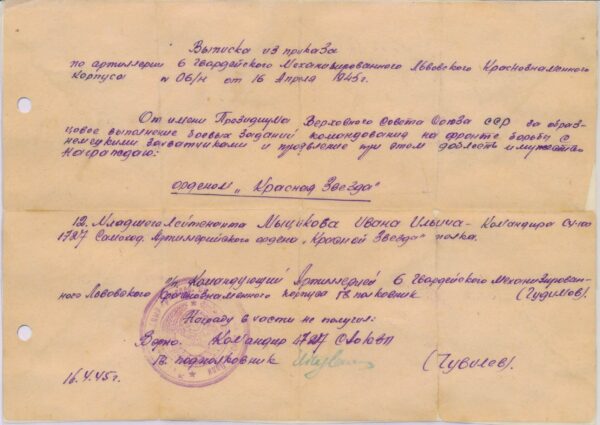 Выписка из приказа
по артиллерии 6 Гвардейского Механизированного Львовского Краснознаменного
Корпуса № 06/н от 16 Апреля 1945г.
От имени Президиума Верховного Совета Союза ССР за образ-
цовое выполнение боевых заданий командования на фронте борьбы с
немецкими захватчиками и проявление при этом доблесть и мужество
Награждаю:
орденом „Красная Звезда"
12. Младшего Лейтенанта Мыщикова Ивана Ильича - Командира СУ-100
1727 Самоход. Артиллерийского ордена „Красной Звезда" полка.
Командующий Артиллерией 6 Гвардейского Механизирован-
ного Львовского Краснознаменного корпуса Гв. полковник (Чудимов).
Награду в части не получил:
Верно: Командир 1727
Гв. подполковник (Чувилев).
16.4.45г.